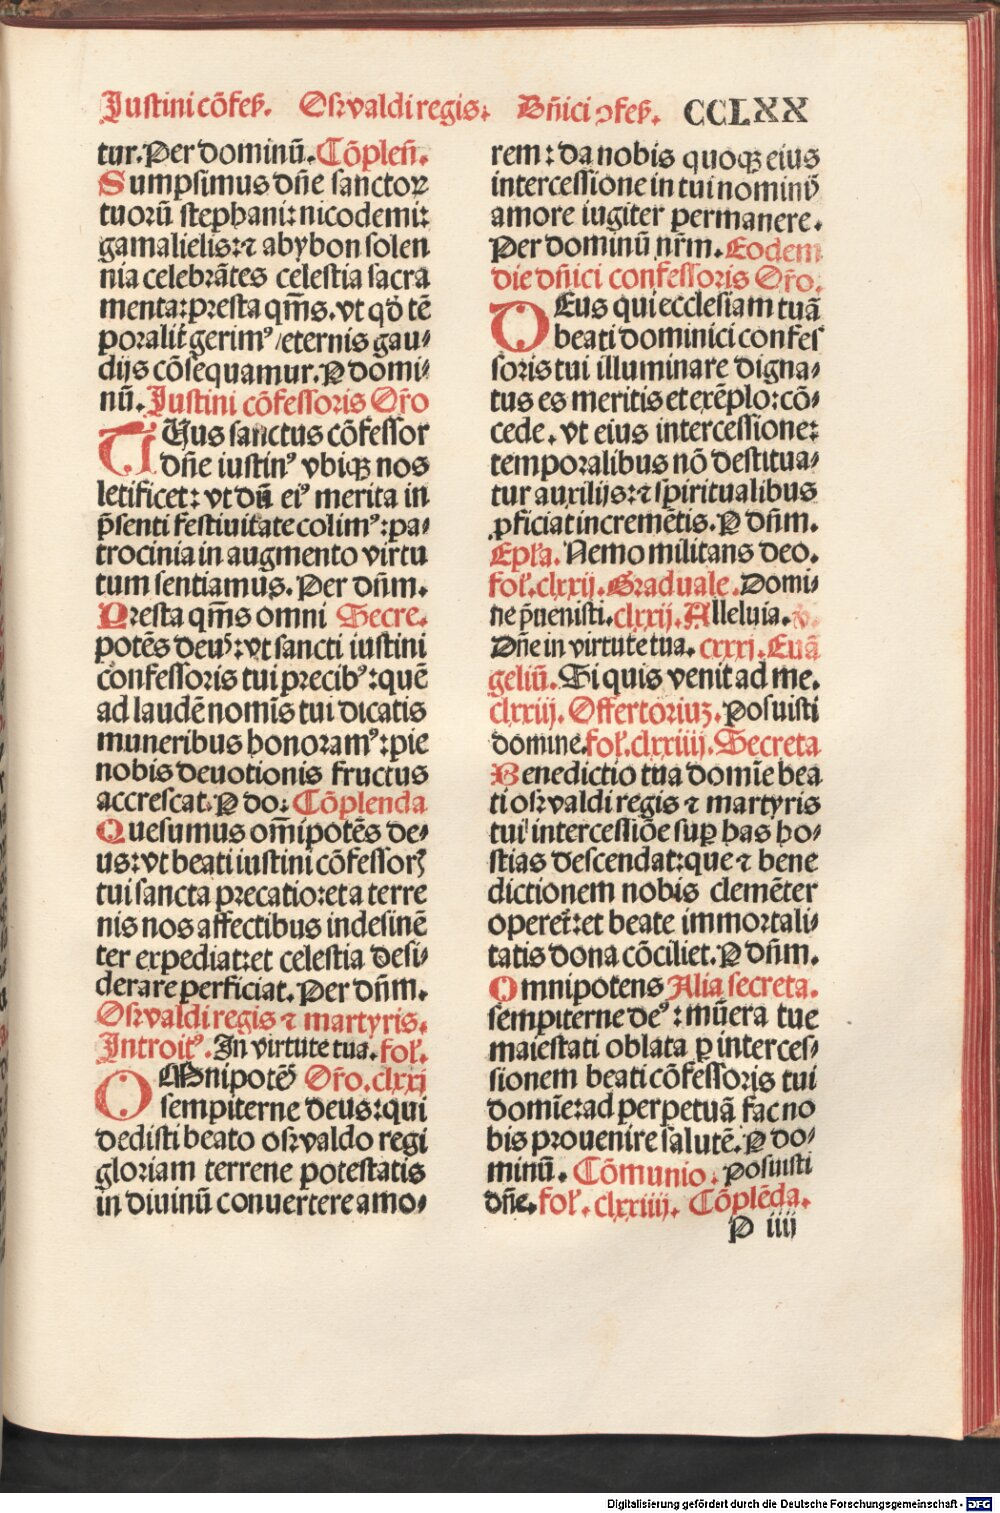 Iustini cõfeß. Oswaldi regis: Dñici ↄfeß. CCLXX
tur. Per dominũ. Cõpleñ.
Sumpsimus dñe sanctoꝝ
tuorũ stephani: nicodemi:
gamalielis: ⁊ abybon solen
nia celebrãtes celestia sacra
menta: presta qm̃s. vt qď tẽ
poralit̃ gerimꝰ / eternis gau⸗
dijs cõsequamur. P domi⸗
nũ. Iustini cõfessoris Oro
TUus sanctus cõfessor
dñe iustinꝰ vbiqꝫ nos
letificet: vt dũ eiꝰ merita in
p̃senti festiuitate colimꝰ: pa⸗
trocinia in augmento virtu
tum sentiamus. Per dñm.
Presta qm̃s omni Secre.
potẽs deus: vt sancti iustini
confessoris tui precibꝰ: quẽ
ad laudẽ nomĩs tui dicatis
muneribus honoramꝰ: pie
nobis deuotionis fructus
accrescat. P do: Cõplenda
Quesumus om̃ipotẽs de⸗
us: vt beati iustini cõfessoꝝ
tui sancta precatio: et a terre
nis nos affectibus indesinẽ
ter expediat: et celestia desi⸗
derare perficiat. Per dñm.
Oswaldi regis ⁊ martyris.
Introitꝰ. In virtute tua. fol.
OMnipotẽs Oro. clxxi
sempiterne deus: qui
dedisti beato oswaldo regi
gloriam terrene potestatis
in diuinũ conuertere amo⸗
rem: da nobis quoqꝫ eius
intercessione in tui nominis
amore iugiter permanere.
Per dominũ nr̃m. Eodem
die dñici confessoris Oro.
DEus qui ecclesiam tuã
beati dominici confes
soris tui illuminare digna⸗
tus es meritis et exẽplo: cõ⸗
cede. vt eius intercessione:
temporalibus nõ destitua⸗
tur auxilijs: ⁊ spiritualibus
ꝓficiat incremẽtis. P dñm.
Epła. Nemo militans deo.
fol. clxxij. Graduale. Domi⸗
ne p̃uenisti. clxxij. Alleluia. ℣.
Dñe in virtute tua. cxxxj. Euã
geliũ. Si quis venit ad me.
clxxiij. Offertoriuꝫ. Posuisti
domine. fol. clxxiiij. Secreta
Benedictio tua domĩe bea
ti oswaldi regis ⁊ martyris
tui intercessiõe sup̱ has ho⸗
stias descendat: que ⁊ bene
dictionem nobis clemẽter
operet̃: et beate immortali⸗
tatis dona cõciliet. P dñm.
Omnipotens Alia secreta.
sempiterne deꝰ: mũera tue
maiestati oblata ꝑ interces⸗
sionem beati cõfessoris tui
domĩe: ad perpetuã fac no
bis prouenire salutẽ. P do⸗
minũ. Cõmunio. Posuisti
dñe. fol. clxxiiij. Cõplẽda.
P iiij
Digitalisierung gefördert durch die Deutsche Forschungsgemeinschaft - DFG